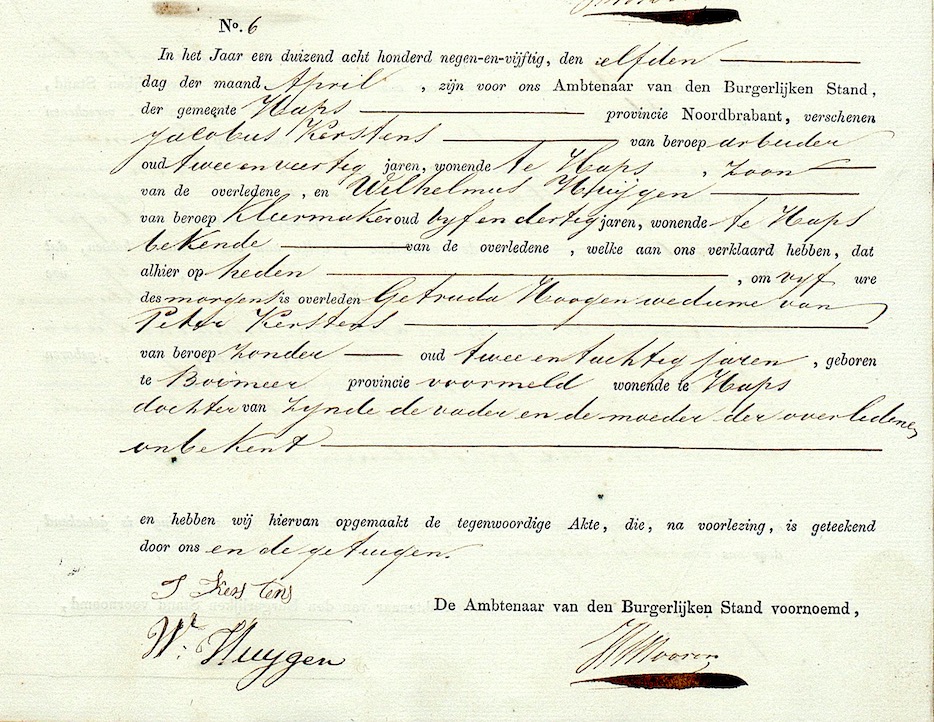 No. 6
In het Jaar een duizend acht honderd negen-en-vijftig, den elfden
dag der maand April, zijn voor ons Ambtenaar van den Burgerlijken Stand,
der gemeente Haps provincie Noordbrabant, verschenen
Jacobus Kerstens van beroep arbeider
oud twee en veertig jaren, wonende te Haps, zoon
van de overledene, en Wilhelmus Huijgen
van beroep Kleermaker oud vyf en dertig jaren, wonende te Haps
bekende van de overledene, welke aan ons verklaard hebben, dat
alhier op heden, om vyf ure
des morgens is overleden Getruda Hoogen weduwe van
Peter Kerstens
van beroep zonder oud twee en tachtig jaren, geboren
te Boxmeer provincie voormeld wonende te Haps
dochter van zynde de vader en de moeder der overledene,
onbekent
en hebben wij hiervan opgemaakt de tegenwoordige Akte, die, na voorlezing, is geteekend
door ons en de getuigen.
J Kerstens
De Ambtenaar van den Burgerlijken Stand voornoemd,
W. Huygen